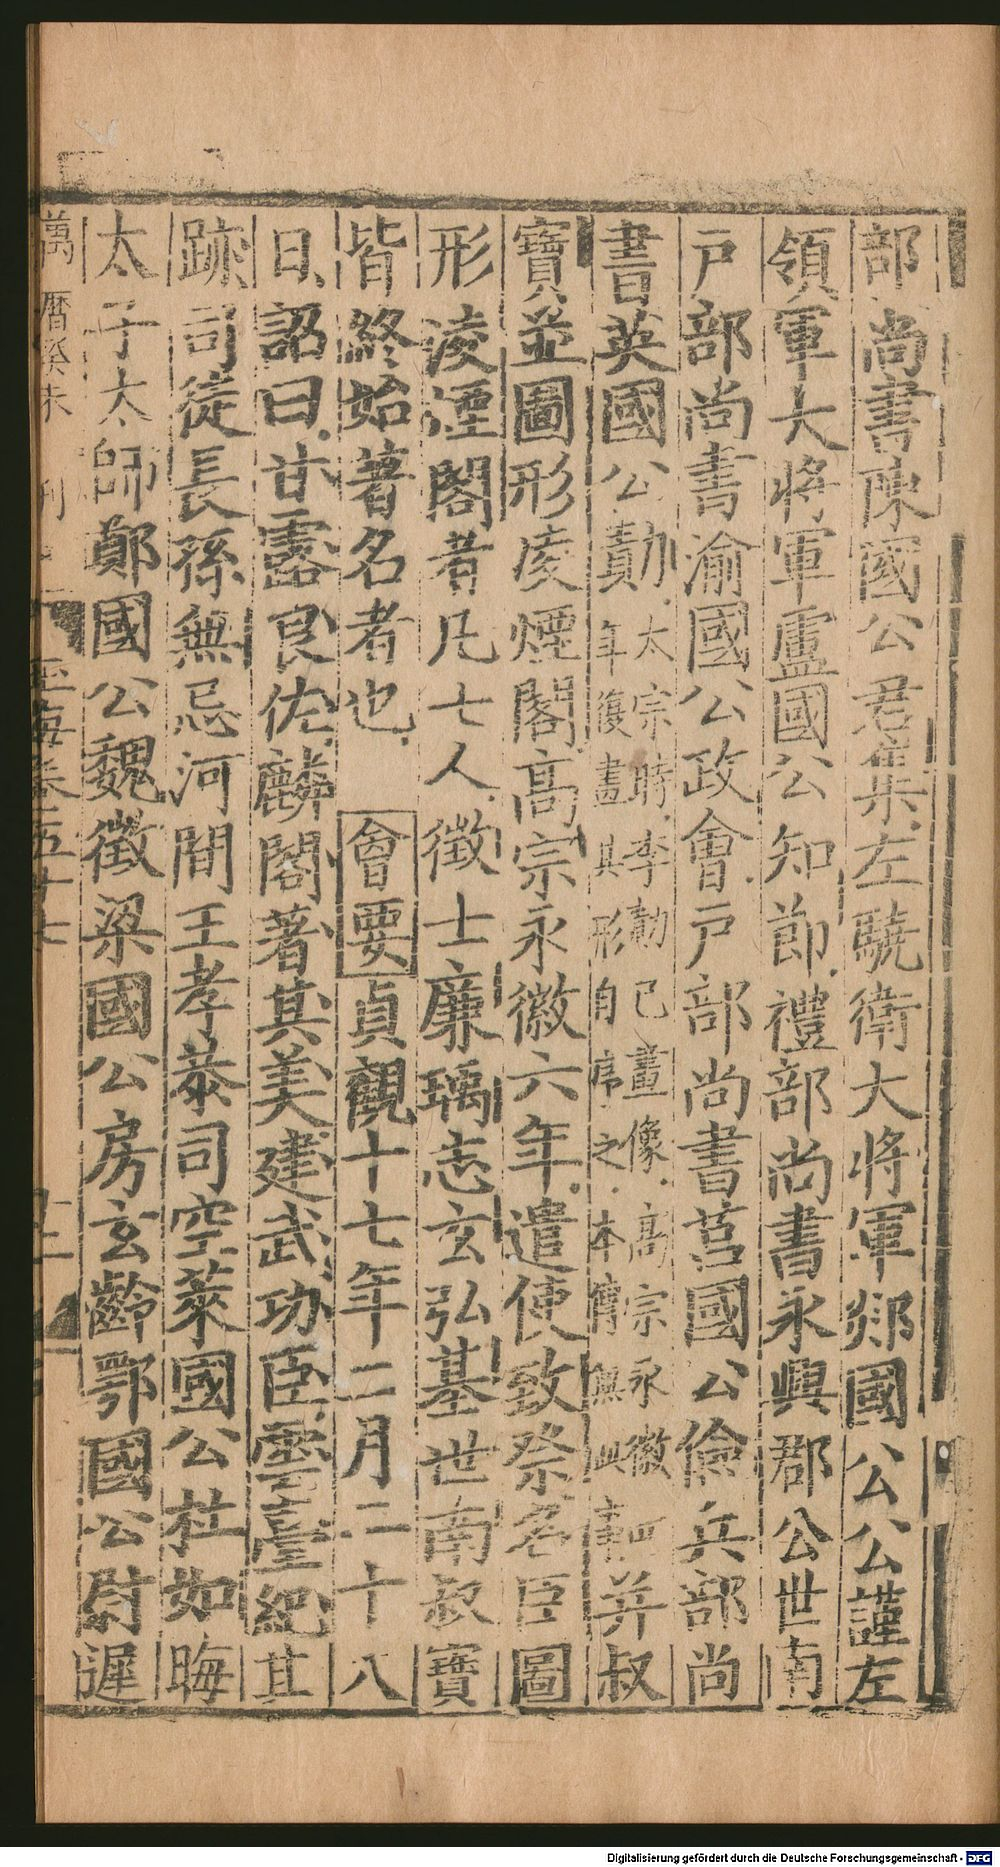 部尚書陳國公君集左驍衛大將軍郯國公公謹左
領軍大將軍盧國公知節禮部尚書永興郡公世南
戶部尚書渝國公政會戶部尚書莒國公儉兵部尚
書英國公勣太宗時李勣已畫像高宗永徽
年復畫其形自序之本傳無此
并叔
寶並圖形凌煙閣高宗永徽六年遣使致祭名臣圖
形淩湮閣者凡七人徵士廉瑀志玄弘基世南叔寶
皆終始著名者也會要貞觀十七年二月二十八
日詔曰甘露良佐麟閣著其美建武功臣雲臺紀其
跡司徒長孫無忌河間王孝恭司空萊國公杜如晦
太子太師鄭國公魏徵梁國公房玄齡鄂國公尉遲
萬曆癸未刊
玉海卷五十七
Digitalisierung gefördert durch die Deutsche Forschungsgemeinschaft - DFG